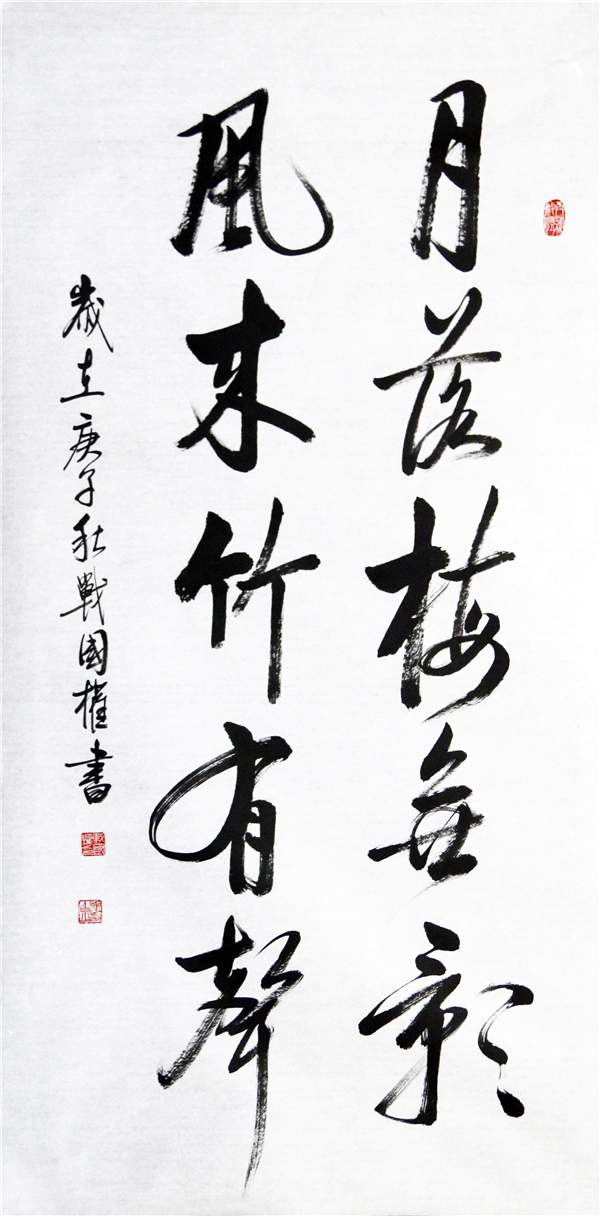 月落梅無影
風来竹有聲
歲在庚子秋戰國權書